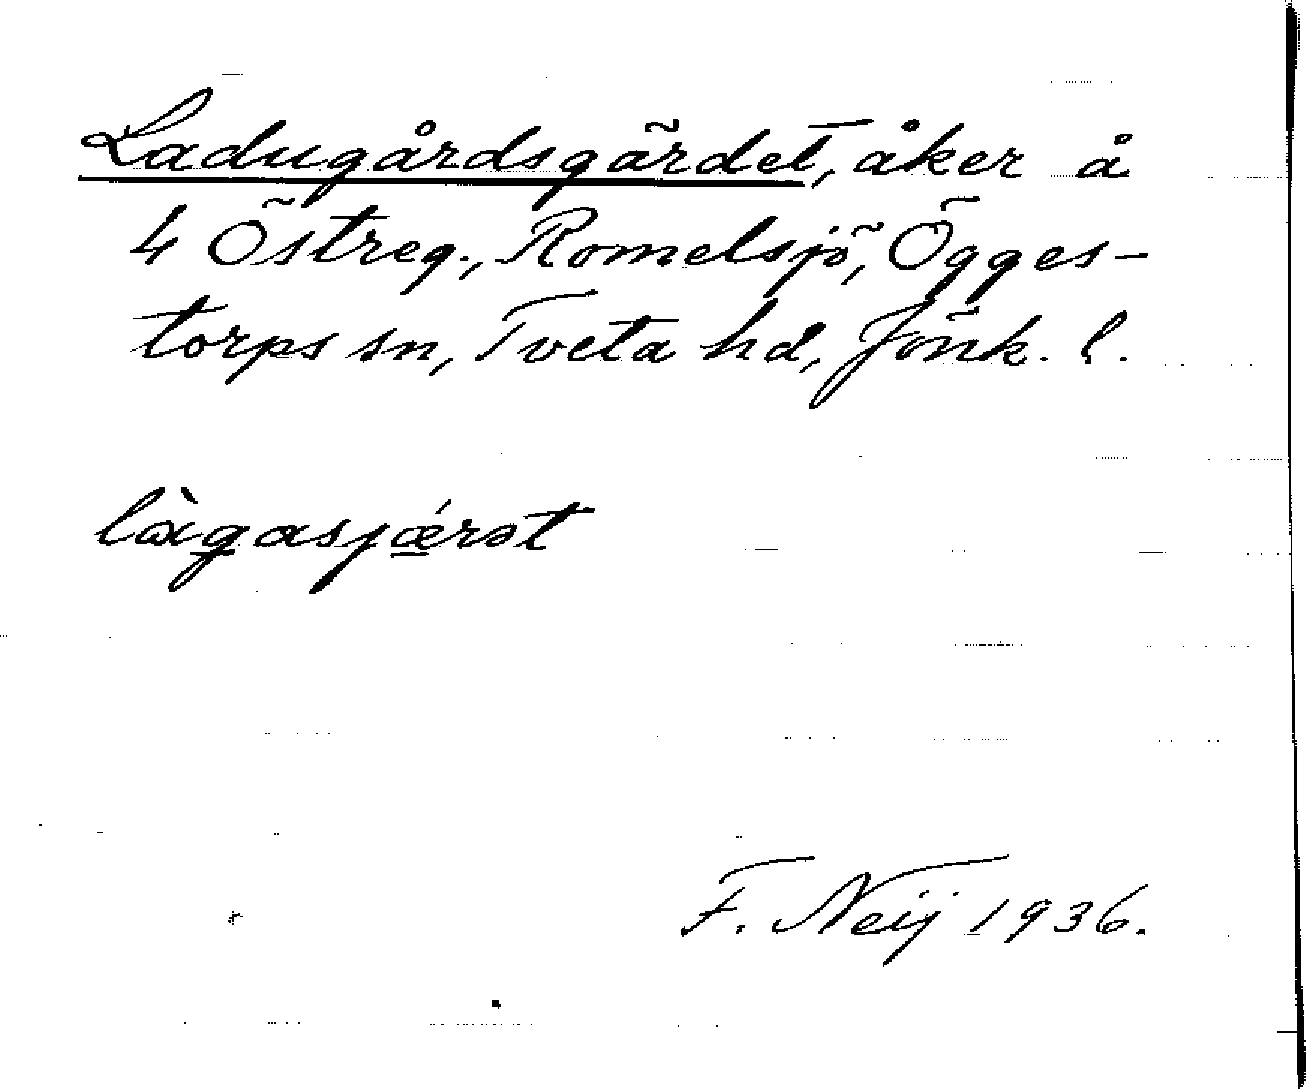 Ladugårdsgärdet, åker å
4 Östreg., Romelsjö, Ögges-
torps sn, Tveta hd, Jönk. l.
làgasjǽrət
F. Neij 1936.